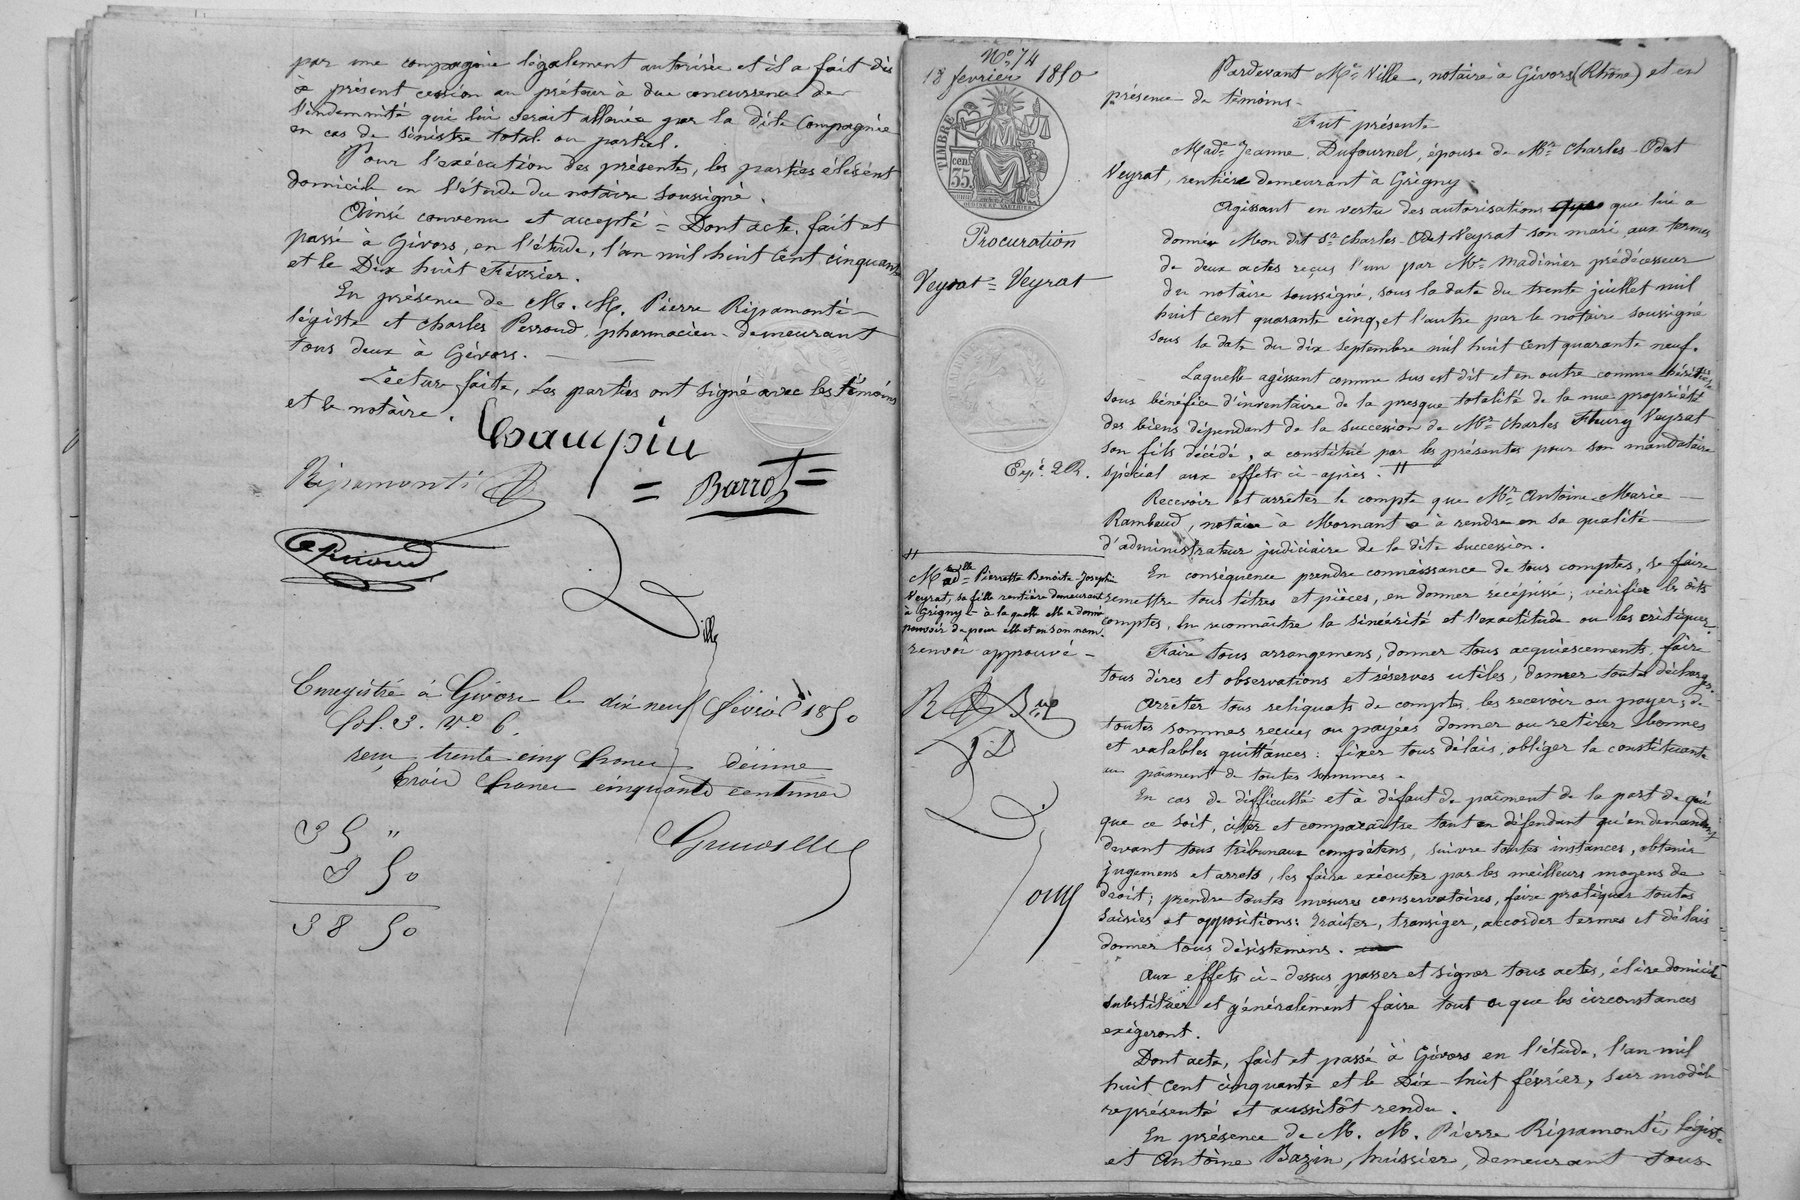 par une compagnie légalement autorisée et il a fait dès
à présent cession au prêteur à due concurrence de
l'indemnité qui lui serait allouée par la dite Compagnie
en cas de sinistre total ou partiel.
Pour l'exécution des présentes, les parties élisent
domicile en l'étude du notaire soussigné.
Ainsi convenu et accepté = Dont acte, fait et
passé à Givors, en l'étude, l'an mil huit cent cinquante
et le Dix huit Février.
En présence de M. M. Pierre Ripamonti
légiste et Charles Perroud, pharmacien demeurant
tous deux à Givors.
Lecture faite, les parties ont signé avec les témoins
et le notaire.
Champin
Ripamonti
= Barrot =
Ville
Enregistré à Givors le dix neuf février 1850
fol. 3. Vo 6.
reçu trente cinq francs décime
trois francs cinquante centimes
35 "
3 50
38 50
No 74
18 février 1850
TIMBRE
cen. 35.
Procuration
Veyrat = Veyrat
Expé 2 R.
Madelle Pierrette Benoite Joséphine
Veyrat, sa fille rentière demeurant
à Grigny = à laquelle elle a donné
pouvoir de pour elle et en son nom.
renvoi approuvé =
R
J D
Pardevant Me Ville, notaire à Givors (Rhône) et en
présence de témoins
Fut présente
Made Jeanne Dufournel, épouse de Mr Charles Odet
Veyrat, rentière demeurant à Grigny
Agissant en vertu des autorisations que lui a
données Mon dit Sr Charles Odet Veyrat son mari aux termes
de deux actes reçus l'un par Me Madinier prédécesseur
du notaire soussigné, sous la date du trente juillet mil
huit cent quarante cinq, et l'autre par le notaire soussigné
sous la date du dix septembre mil huit cent quarante neuf.
Laquelle agissant comme sus est dit et en outre comme héritière
sous bénéfice d'inventaire de la presque totalité de la nue propriété
des biens dépendant de la succession de Mr Charles Fleury Veyrat
son fils décédé, a constitué par les présentes pour son mandataire
spécial aux effets ci-après.
Recevoir et arrêter le compte que Mr Antoine Marie
Rambaud, notaire à Mornant a à rendre en sa qualité
d'administrateur judiciaire de la dite succession.
En conséquence prendre connaissance de tous comptes, se faire
remettre tous titres et pièces, en donner récépissé; vérifier les dits
comptes, en reconnaître la sincérité et l'exactitude ou les critiquer.
Faire tous arrangemens, donner tous acquiescements, faire
tous dires et observations et réserves utiles, donner toutes décharges.
Arrêter tous reliquats de comptes, les recevoir ou payer, de
toutes sommes reçues ou payées donner ou retirer bonnes
et valables quittances: fixer tous délais, obliger la constituante
au paiment de toutes sommes.
En cas de difficulté et à défaut de paiment de la part de qui
que ce soit, citer et comparaître tant en défendant qu'en demandant
devant tous tribunaux compétens, suivre toutes instances, obtenir
jugemens et arrets, les faire exécuter par les meilleurs moyens de
droit; prendre toutes mesures conservatoires, faire pratiquer toutes
saisies et oppositions: traiter, transiger, accorder termes et délais
donner tous désistemens.
Aux effets ci-dessus passer et signer tous actes, élire domicile
substituer et généralement faire tout ce que les circonstances
exigeront.
Dont acte, fait et passé à Givors en l'étude, l'an mil
huit cent cinquante et le Dix-huit février, sur modèle
représenté et aussitôt rendu.
En présence de M. M. Pierre Ripamonti, légiste
et Antoine Bazin, huissier, demeurant tous